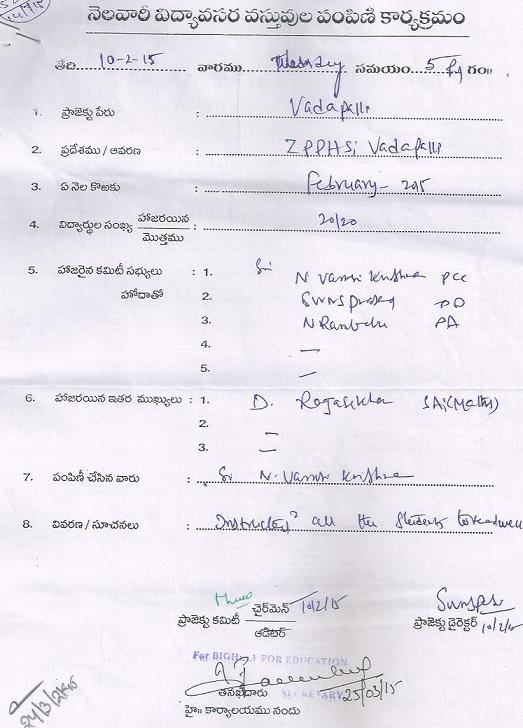 నెలవారీ విద్యావసర వస్తువుల పంపిణి కార్యక్రమం
తేది 10-2-15 వారము సమయం 5 గం॥
1. ప్రాజెక్టు పేరు : Vadapalli
2. ప్రదేశము / ఆవరణ : ZPPHS; Vadapalli
3. ఏ నెల కొఱకు : February - 2015
4. విద్యార్థుల సంఖ్య హాజరయిన / మొత్తము : 20/20
5. హాజరైన కమిటీ సభ్యులు : 1. Sri N Vamsi Krishna PCC
హోదాతో 2. SWNS Prasad PD
3. N Rambabu PA
4. —
5. —
6. హాజరయిన ఇతర ముఖ్యులు : 1. D. Rajasekhar SA;(Maths)
2. —
3. —
7. పంపిణీ చేసిన వారు : Sri N. Vamsi Krishna
8. వివరణ / సూచనలు : Instructed all the students to read well
ప్రాజెక్టు కమిటీ చైర్‌మెన్ / ఆడిటర్ 10/2/15
ప్రాజెక్టు డైరెక్టర్ 10/2/15
For BIGH FOR EDUCATION
SECRETARY 25/03/15
తనిఖీదారు
హై॥ కార్యాలయము నందు
24/3/2015